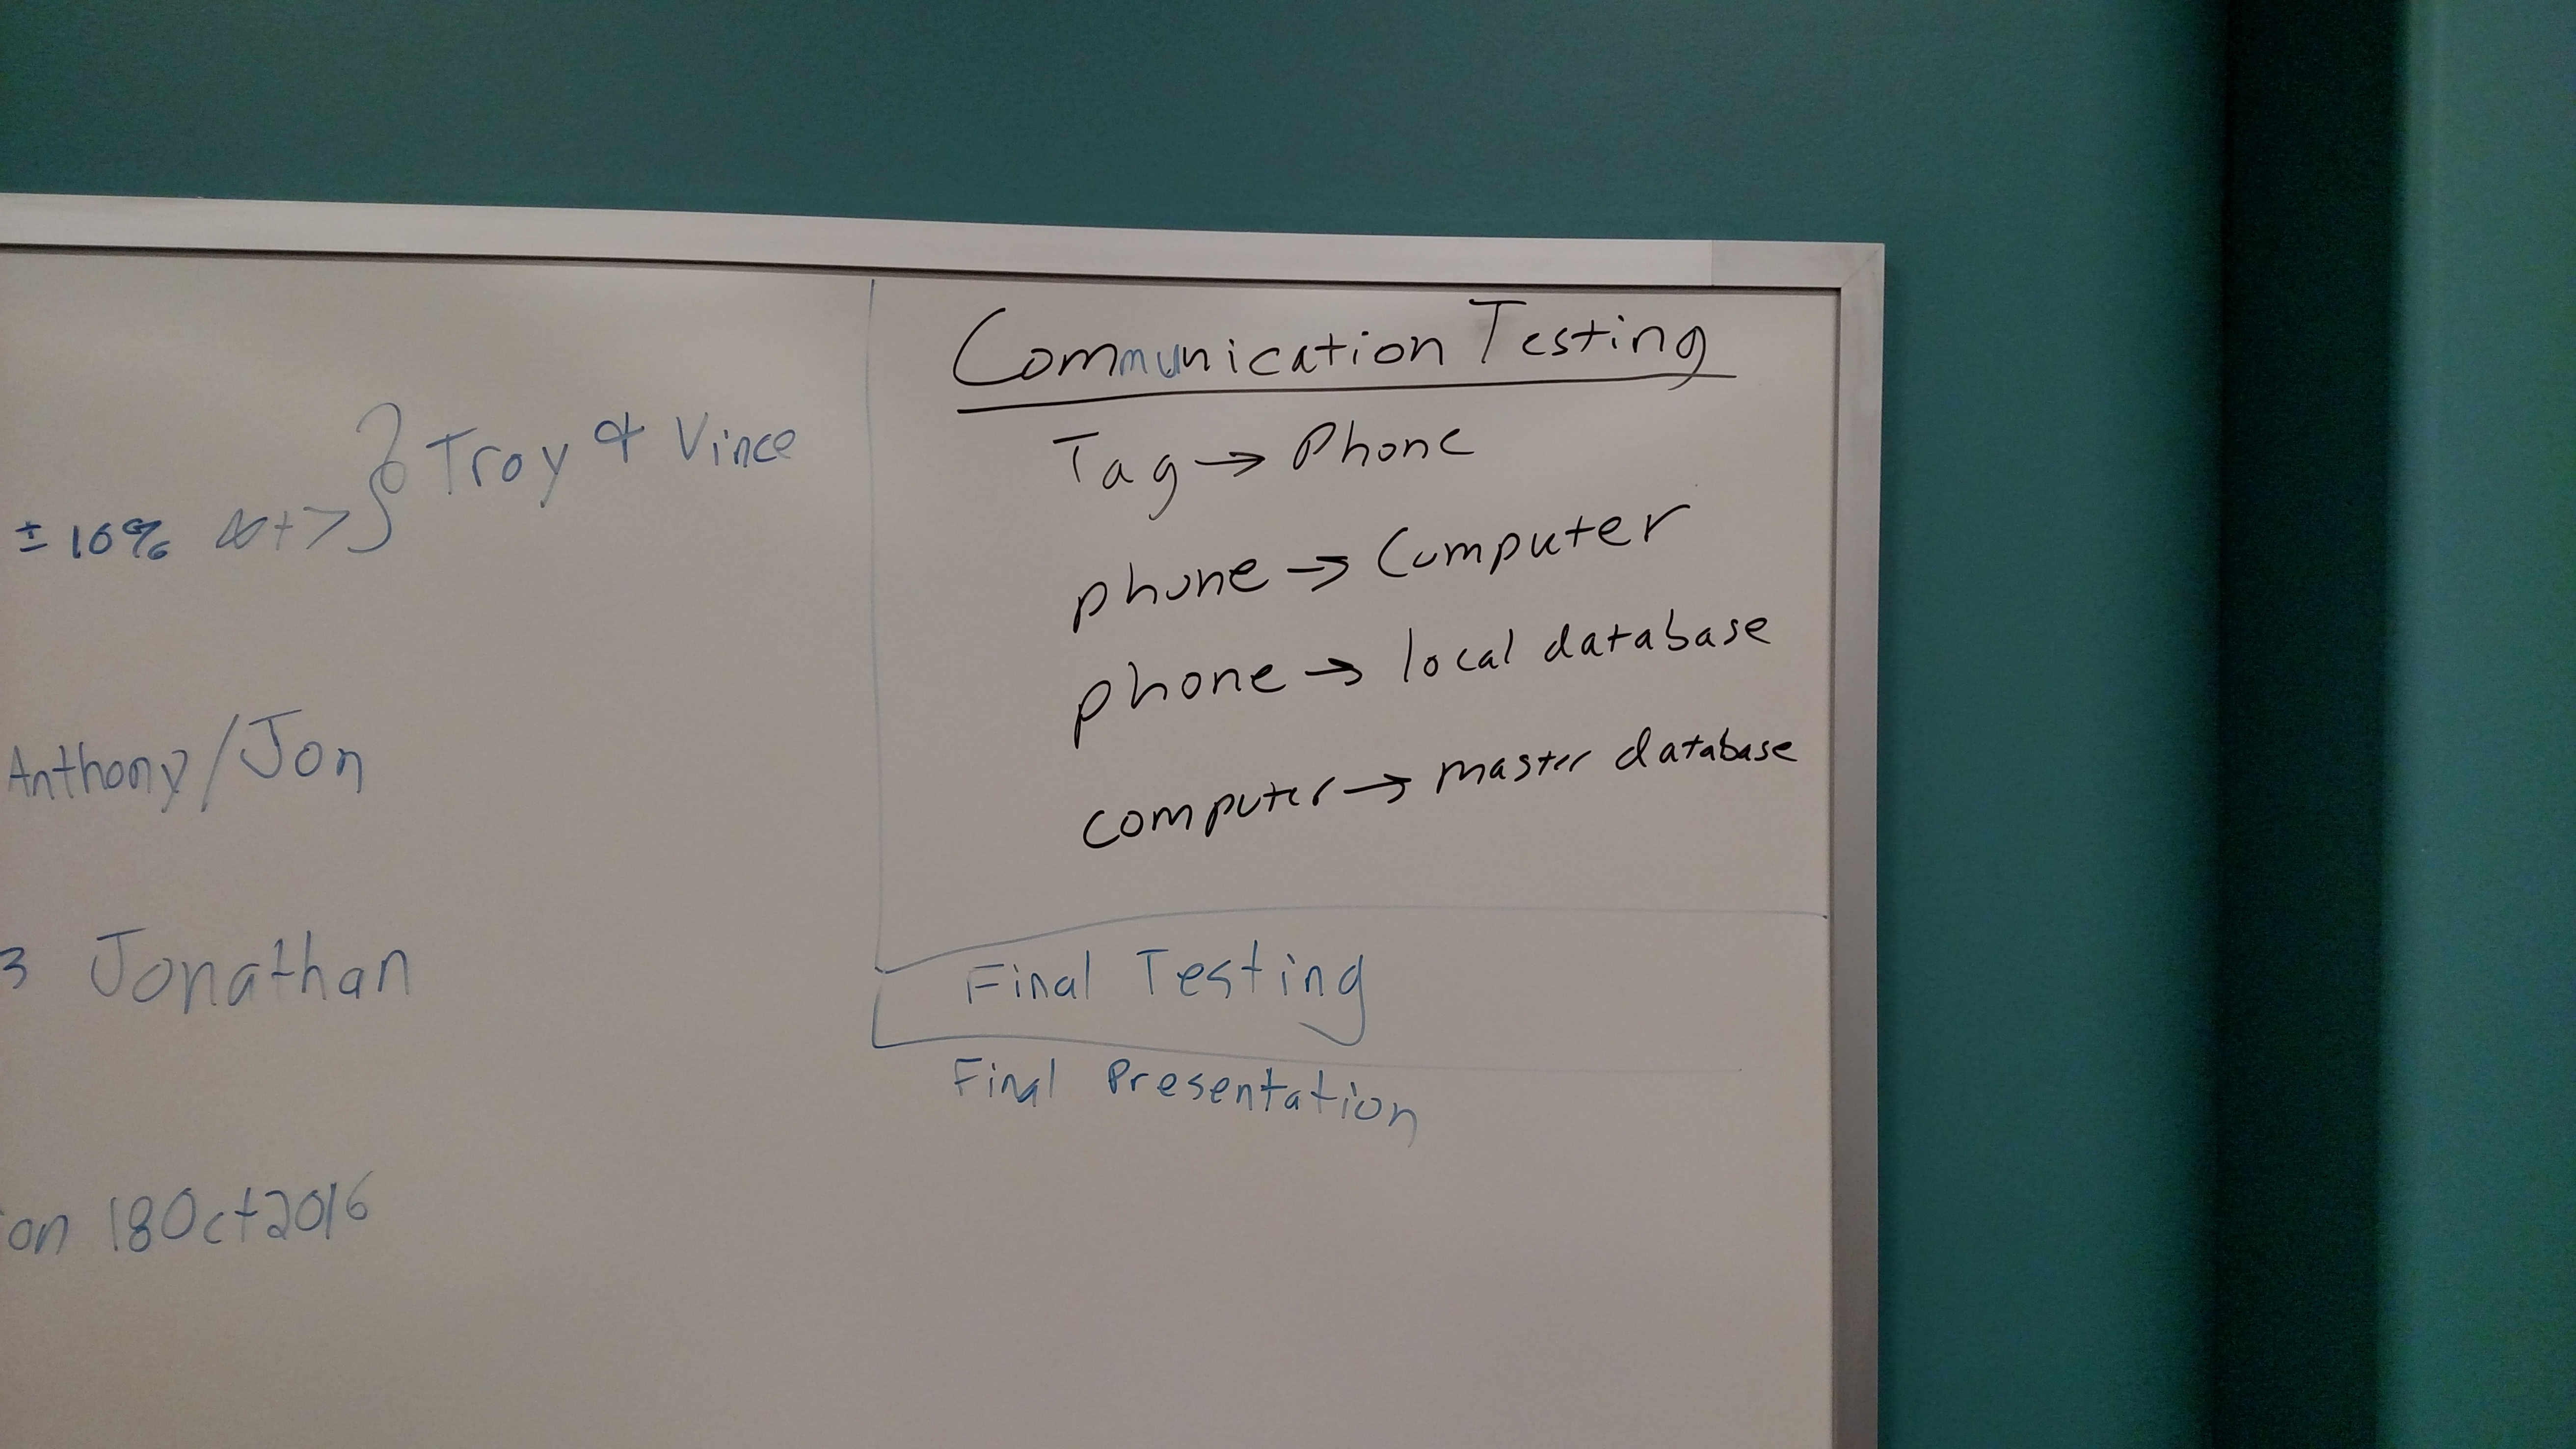 Troy & Vince
± 10%
Anthony/Jon
3 Jonathan
on 18Oct2016
Communication Testing
Tag → Phone
phone → Computer
phone → local database
computer → master database
Final Testing
Final Presentation